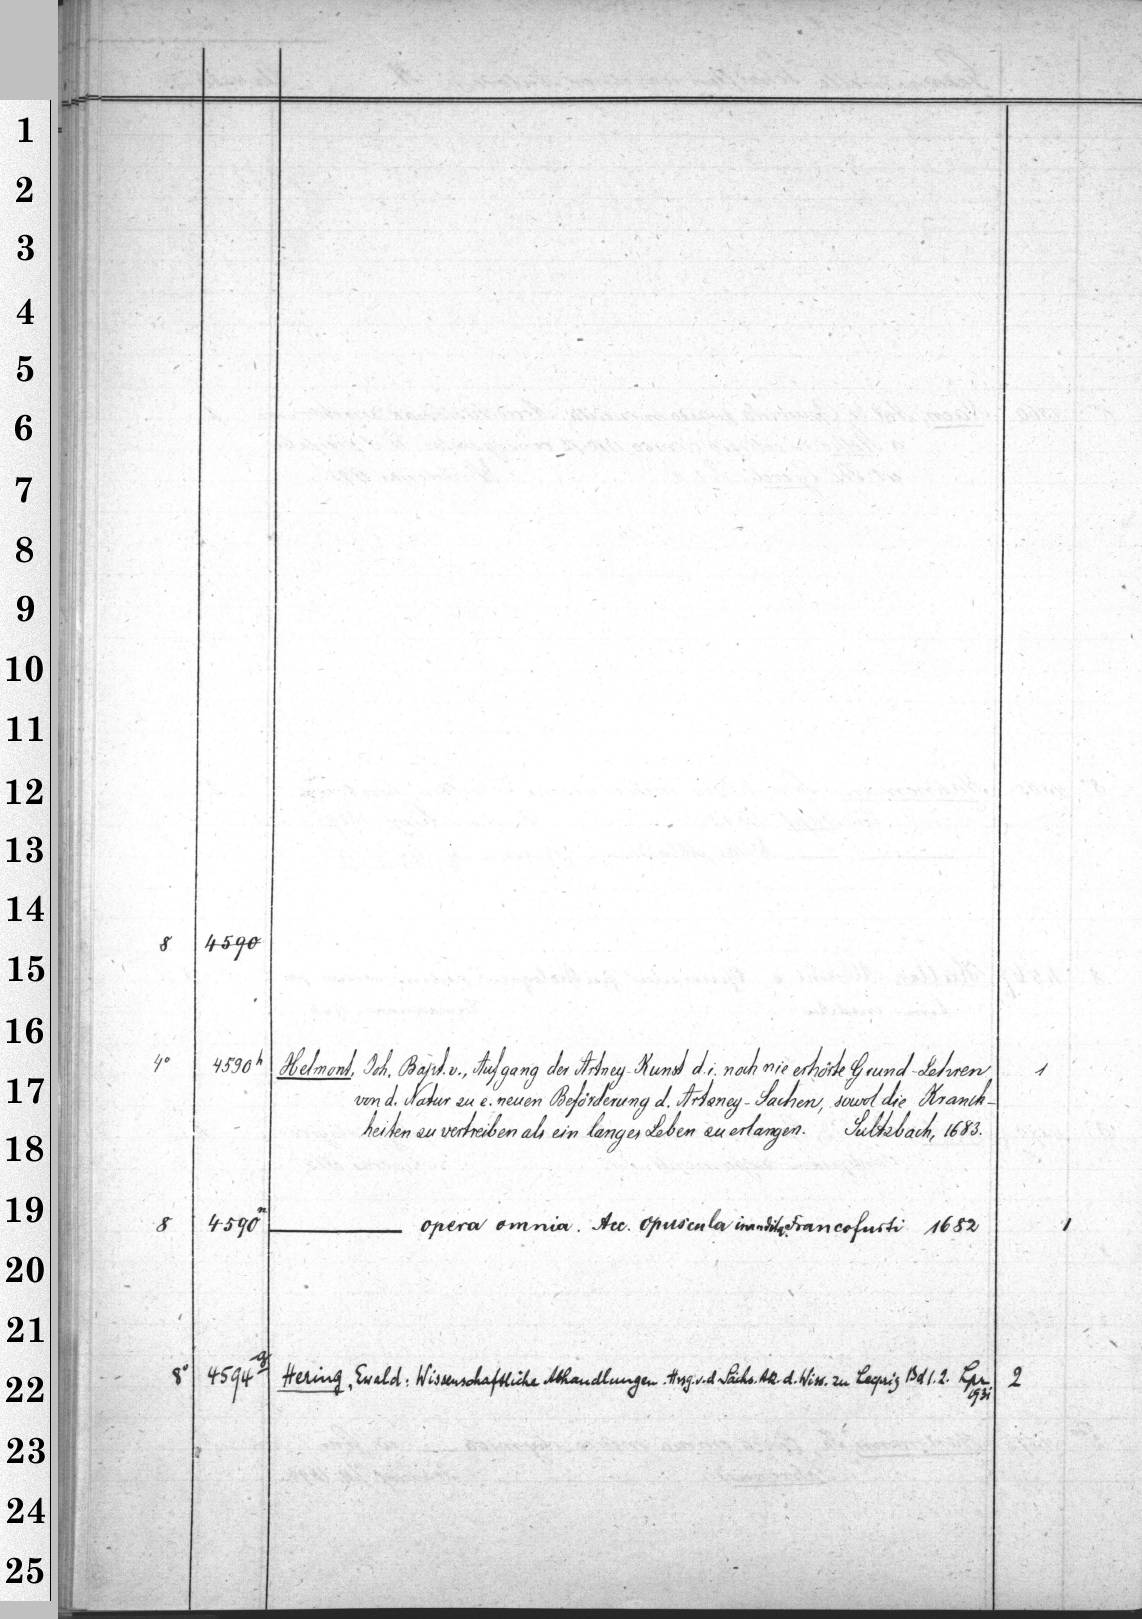 1
2
3
4
5
6
7
8
9
10
11
12
13
14
8 4590
15
16
4° 4590h Helmont, Joh. Bapt. v., Aufgang der Artney-Kunst d.i. noch nie erhörte Grund-Lehren 1
17
von d. Natur zu e. neuen Beförderung d. Artzney-Sachen, sowol die Kranck-
heiten zu vertreiben als ein langes Leben zu erlangen. Sultzbach, 1683.
18
19
8 4590n ——— opera omnia. Acc. opuscula inaudita. Francofurti 1682 1
20
21
8° 4594g Hering, Ewald: Wissenschaftliche Abhandlungen. Hrsg. v. d. Sächs. Ak. d. Wiss. zu Leipzig Bd 1. 2. Lpz 2
1931
22
23
24
25